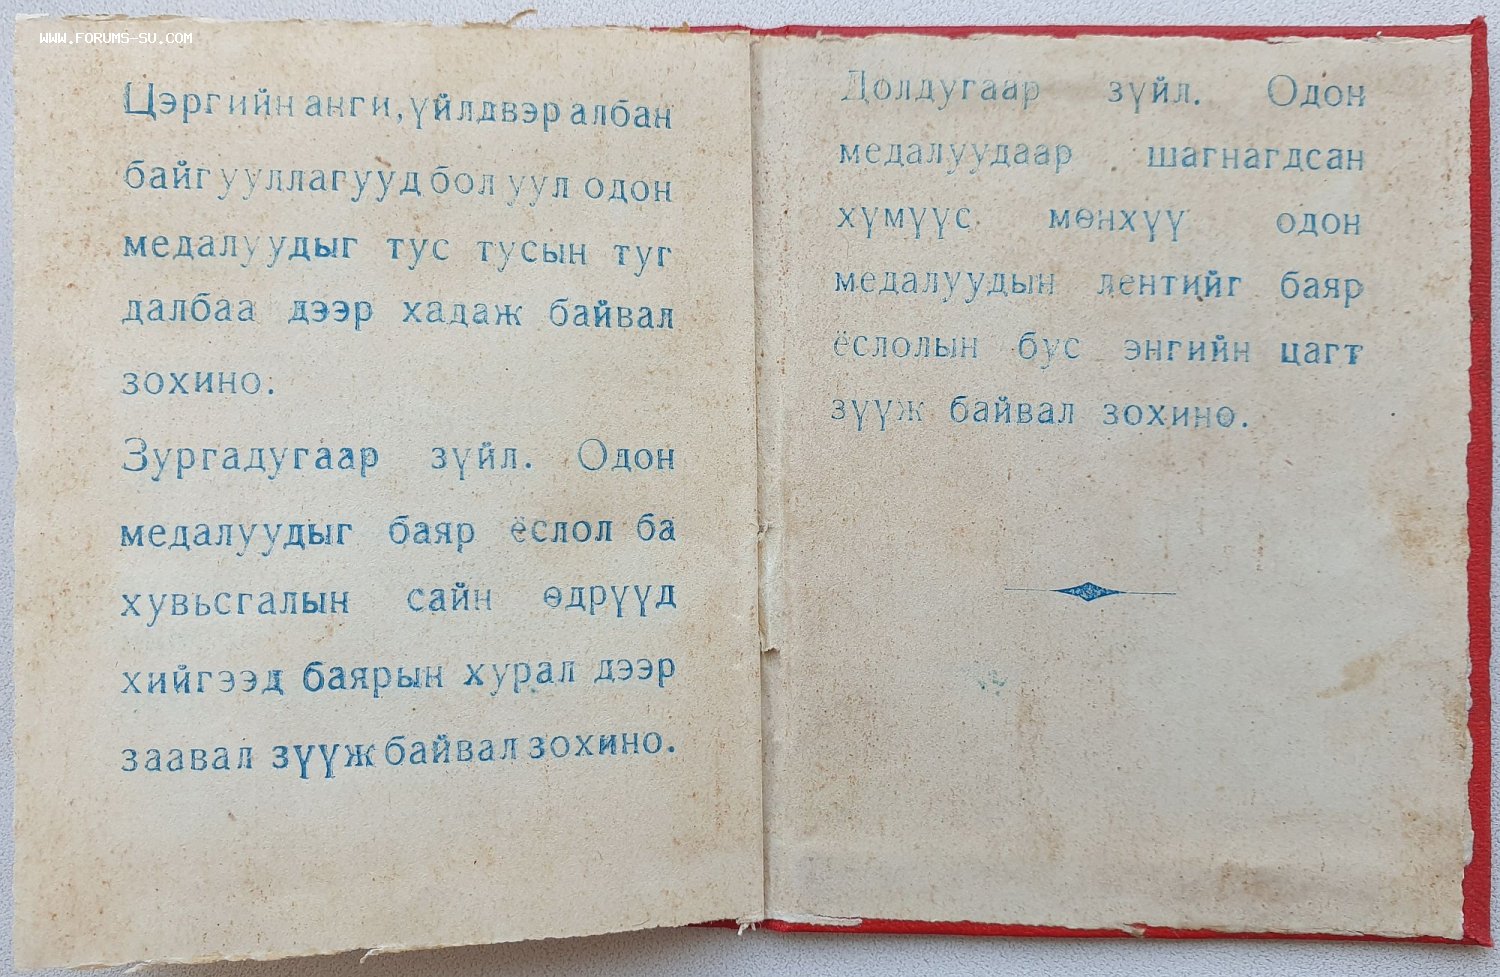 WWW.FORUMS-SU.COM
Цэргийн анги, үйлдвэр албан
байгууллагууд бол уул одон
медалуудыг тус тусын туг
далбаа дээр хадаж байвал
зохино.
Зургадугаар зүйл. Одон
медалуудыг баяр ёслол ба
хувьсгалын сайн өдрүүд
хийгээд баярын хурал дээр
заавал зүүж байвал зохино.
Долдугаар зүйл. Одон
медалуудаар шагнагдсан
хүмүүс мөнхүү одон
медалуудын лентийг баяр
ёслолын бус энгийн цагт
зүүж байвал зохино.